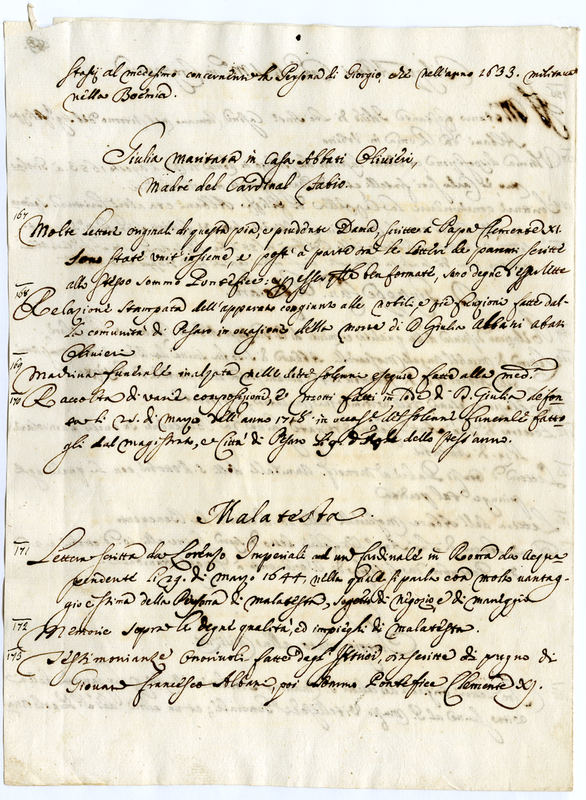 stassij al medesimo concernenti la Persona di Giorgio, che nell'anno 1633. militava
nella Boemia.
Giulia maritata in Casa Abbati Olivieri,
Madre del Cardinal Fabio.
167
Molte lettere originali di questa pia, e prudente Dama, scritte a Papa Clemente XI.
sono state unite insieme, e poste a parte tra le lettere de parenti scritte
allo stesso sommo Pontefice: per esser ben formate, sono degne d'esser lette
168
Relazione stampata dell'apparato congiunto alle nobili, e pie funzioni fatte dal-
la comunità di Pesaro in occasione della morte di D. Giulia Albani abati
Olivieri
169
Macchina funerale inalzata nelle dette solenni esequie fatte alla med.ª
170
Raccolta di varie composizioni, e fatti in lode di D. Giulia defon
ta li di marzo dell'anno in occase del solenne funerale fatto
gli dal magistrato, e Città di Pesaro dello stess'anno.
Malatesta.
171
Lettera scritta da Lorenzo Imperiali ad un Cardinale in Roma da Acqua
pendente li 29. di Marzo 1644. nella quale si parla con molto vantag-
gio e stima della Persona di malatesta, di negozio e di maneggio
172
Memorie sopra le degne qualità, ed impieghi di malatesta.
173
Testimonianze onorevoli fatte degl' Storici, trascritte di pugno di
Giovan Francesco Albani, poi sommo Pontefice Clemente XI.